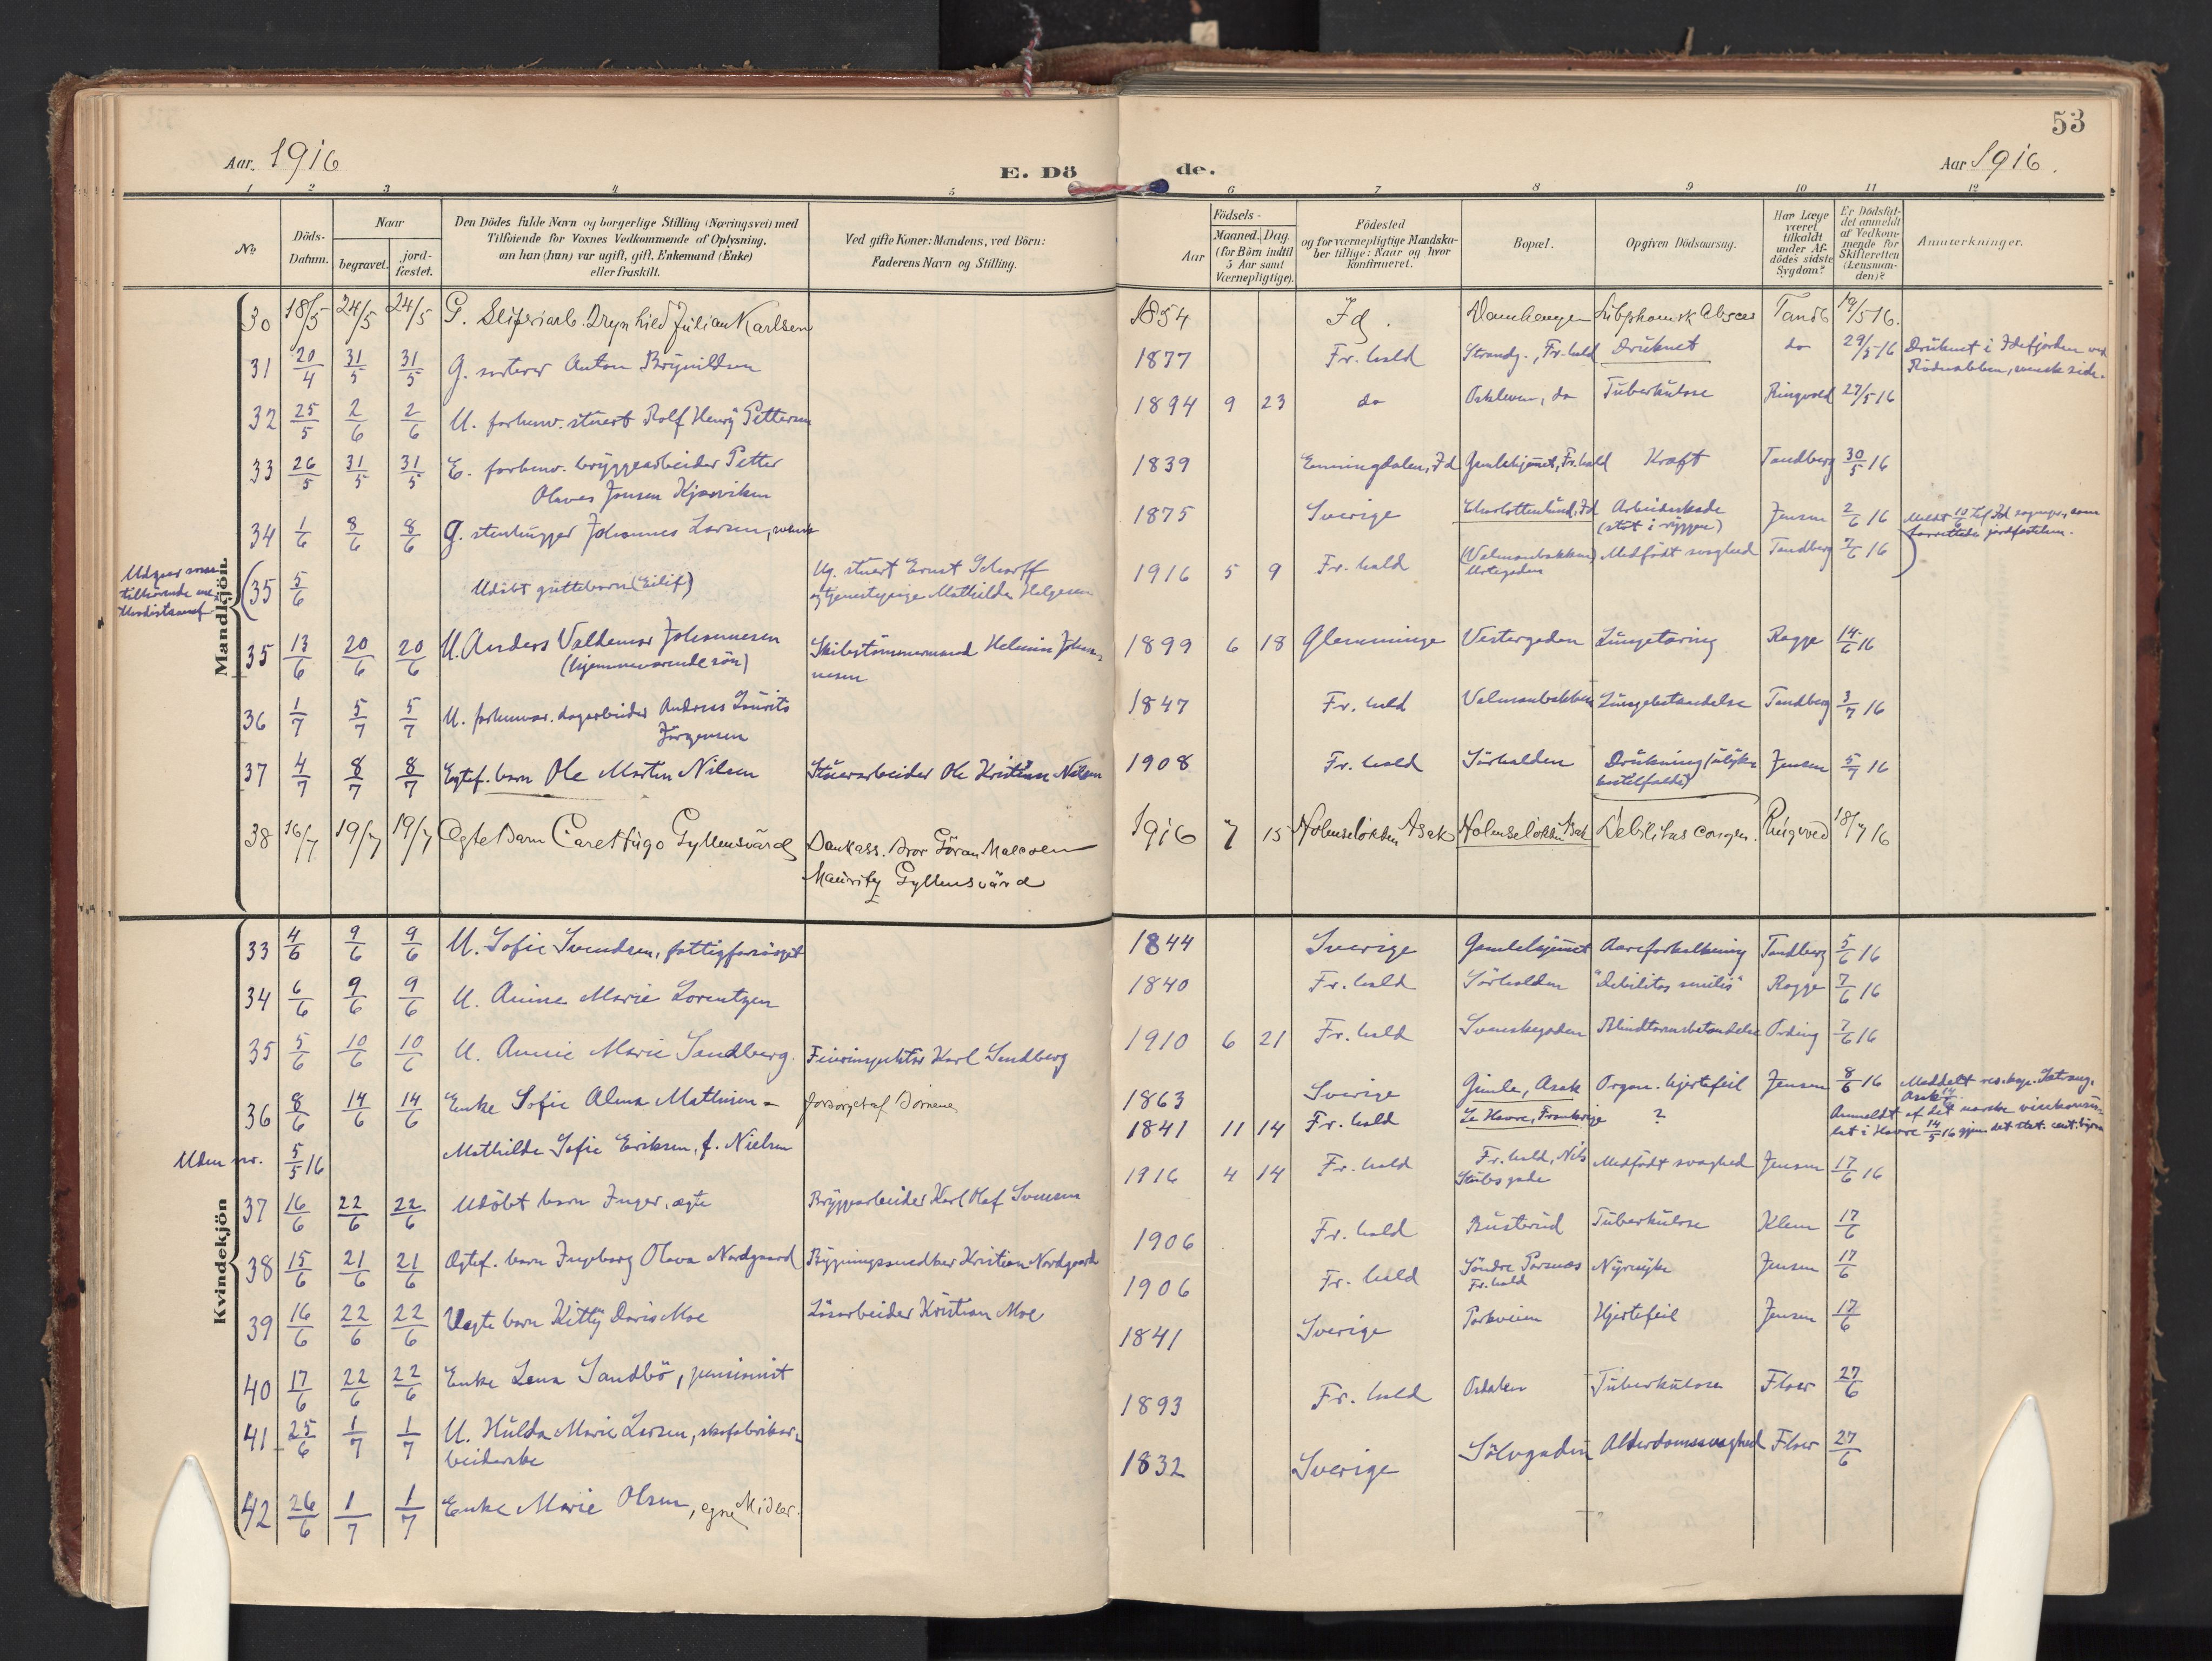 53
Aar. 1916
E. Dö
de.
Aar 1916.
1 2 3 4 5 6 7 8 9 10 11 12
No
Döds-
Datum.
Naar
begravet.
jord-
fæstet.
Den Dödes fulde Navn og borgerlige Stilling (Næringsvei) med
Tilföiende for Voxnes Vedkommende af Oplysning,
om han (hun) var ugift, gift, Enkemand (Enke)
eller fraskilt.
Ved gifte Koner: Mandens, ved Börn:
Faderens Navn og Stilling.
Födsels-
Aar
Maaned. Dag.
(for Börn indtil
5 Aar samt
Værnepligtige).
Födested
og for værnepligtige Mandska-
ber tillige: Naar og hvor
konfirmeret.
Bopæl.
Opgiven Dödsaarsag.
Har Læge
været
tilkaldt
under Af-
dödes sidste
Sygdom?
Er Dödsfal-
det anmeldt
af Vedkom-
mende for
Skifteretten
(Lensman-
den)?
Anmærkninger.
Mandkjön.
30 18/5 24/5 24/5 G. Sliperiarb. Julian Karlsen 1854 Id. Tandb 19/5 16.
31 20/4 31/5 31/5 G. sorterer Anton Brynildsen 1877 Fr.hald Strandg., Fr.hald Druknet do 29/5 16 Druknet i Idefjorden ved
svensk side.
32 25/5 2/6 2/6 U. forhenv. stuert Rolf Henry Pettersen 1894 9 23 do Oskleven, do Tuberkulose Ringvold 27/5 16
33 26/5 31/5 31/5 E. forhenv. bryggearbeider Petter
Olaves Jensen Kjærviken 1839 Enningdalen, Id Gamlehjemmet, Fr.hald Kræft Tandberg 30/5 16
34 1/6 8/6 8/6 G. stenhugger Johannes Larsen, svensk 1875 Sverige Charlottenlund, Id Arbeidsskade
(støt i ryggen) Jensen 2/6 16 Meldt 10/6 til Id sogneprest, som
forrettede jordfæstelsen.
Udgaar som
tilhørende me-
thodistsamf.
(35 5/6 Udöbt guttebarn (Eilif) Ug. stuert Ernst Scharff
og tjenestepige Mathilde Helgesen 1916 5 9 Fr. hald (Velmanbakken)
Urtegaden Medfödt svaghed Tandberg 7/6 16
35 13/6 20/6 20/6 U. Anders Valdemar Johannesen
(hjemmeværende sön) Skibstömmermand Helmin Johan-
nesen 1899 6 18 Glemminge Vestergaden Lungetæring Rogge 14/6 16
36 1/7 5/7 5/7 U. forhenvær. dagarbeider Andreas Laurits
Jörgensen 1847 Fr. hald Velmanbakken Lungebetændelse Tandberg 3/7 16
37 4/7 8/7 8/7 Egtef. barn Ole Martin Nilsen Stuerarbeider Ole Kristian Nilsen 1908 Fr. hald Sörhalden Drukning (ulykkes-
tilfælde) Jensen 5/7 16
38 16/7 19/7 19/7 Ægte Barn Carl Hugo Gyllensvärd Bankass. Bror Göran Malcolm
Mauritz Gyllensvärd 1916 7 15 Holenseløkken Asak Holenseløkken Asak Debilitas congen. Ringvold 18/7 16
Kvindekjön
33 4/6 9/6 9/6 U. Sofie Svendsen, fattigforsörget 1844 Sverige Gamlehjemmet Aareforkalkning Tandberg 5/6 16
34 6/6 9/6 9/6 U. Anine Marie Lorentzen 1840 Fr. hald Sörhalden "Debilitas senilis" Rogge 7/6 16
35 5/6 10/6 10/6 U. Annie Marie Sandberg. Feierinspektör Karl Sandberg 1910 6 21 Fr. hald Svenskegaden Blindtarmsbetændelse Ording 7/6 16
36 8/6 14/6 14/6 Enke Sofie Alma Mathisen - forsörget af Börnene 1863 Sverige Gimle, Asak Organ. hjertefeil Jensen 8/6 16 Meddelt
Uden nr. 5/5 16 Mathilde Sofie Eriksen, f. Nielsen 1841 11 14 Fr. hald Le Havre, Frankrige ? Anmeldt af det norske vicekonsu-
lat i Havre 14/5 16 gjen. det stat. cent.
37 16/6 22/6 22/6 Udöbt barn Inger, ægte Bryggearbeider Karl Olaf Svensen 1916 4 14 Fr. hald Fr.hald, Nils
Stubs gade Medfödt svaghed Jensen 17/6 16
38 15/6 21/6 21/6 Ægtef. barn Ingeborg Olava Nordgaard Bygningssnedker Kristian Nordgaard 1906 Fr. hald Busterud Tuberkulose Klem 17/6
39 16/6 22/6 22/6 Uegte barn Kitty Doris Moe Lösarbeider Kristian Moe 1906 Fr. hald Söndre
Fr.hald Nyresyke Jensen 17/6
40 17/6 22/6 22/6 Enke Lena Sandbö, pensionist 1841 Sverige Parkveien Hjertefeil Jensen 17/6
41 25/6 1/7 1/7 U. Hulda Marie Larsen, skofabrikar-
beiderske 1893 Fr. hald Osdalen Tuberkulose Floer 27/6
42 26/6 1/7 1/7 Enke Marie Olsen, egne Midler. 1832 Sverige Sölvgaden Alderdomssvaghed Floer 27/6